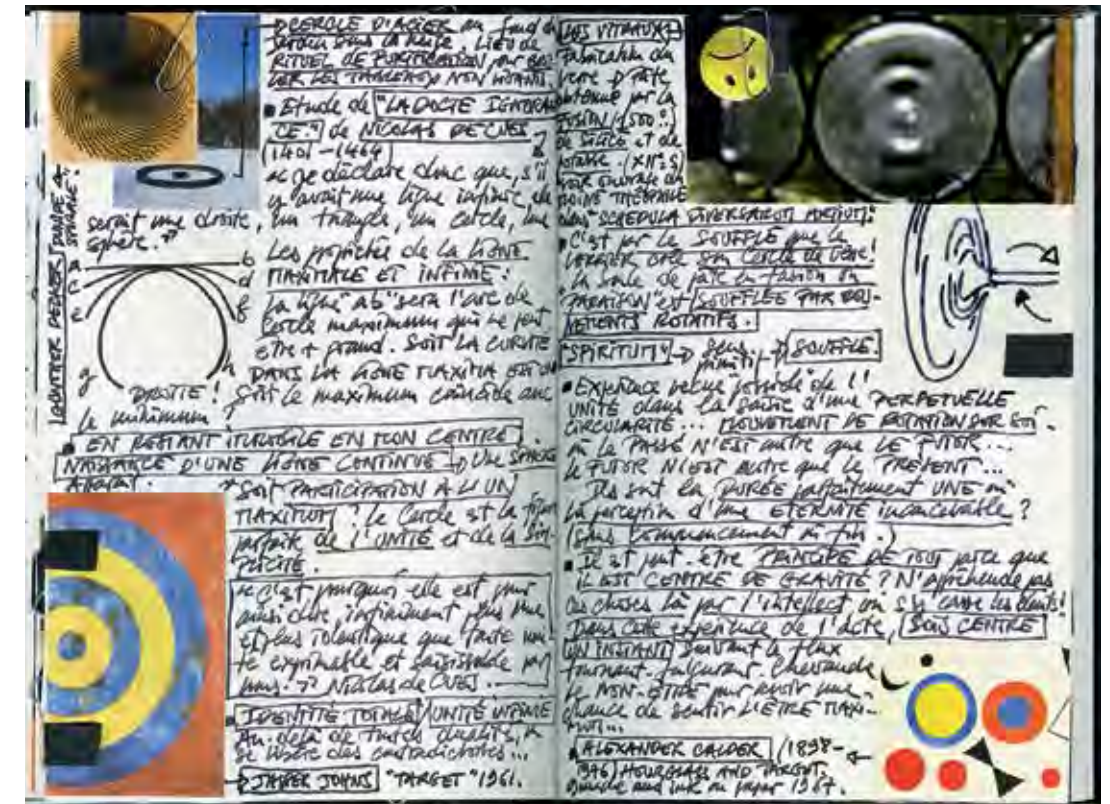 CERCLE D'ACIER au fond du
jardin sous la neige. LIEU DE
RITUEL DE PURIFICATION pour
LES TABLEAUX NON
Etude de "LA DOCTE IGNORAN
CE." de NICOLAS DE CUES
(1401-1464)
"Je déclare donc que, s'il
y avait une ligne infinie, elle
serait une droite, un triangle, un cercle, une
sphère."
SPIRALE"
a b
c d
e f
g h
Les propriétés de la LIGNE
MAXIMALE ET INFINIE:
La ligne "ab" sera l'arc de
cercle maximum qui ne peut
être + grand. SOIT LA CURVITÉ
DANS LA LIGNE MAXIMA EST UNE
DROITE! Soit le maximum coïncide avec
le minimum.
EN RESTANT IMMOBILE EN MON CENTRE,
D'UNE LIGNE CONTINUE UNE SPHÈRE
APPARAÎT.
Soit PARTICIPATION A L'UN
MAXIMUM! Le Cercle est la figure
parfaite de l'UNITÉ et de la SIM-
PLICITÉ.
"C'est pourquoi elle est pour
ainsi dire, infiniment plus une
et plus identique que toute uni-
té exprimable et saisissable par
nous." Nicolas de CUES.
IDENTITÉ TOTALE / UNITÉ INFINIE
Au-delà de toutes dualités,
se libère des contradictions...
JASPER JOHNS "TARGET" 1961.
LES VITRAUX
Fabrication du
verre pâte
obtenue par la
FUSION (1500°)
DE SILICE et de
potasse. (XII° S)
voir ouvrage du
MOINE THÉOPHILE
dans "SCHEDULA DIVERSARUM ARTIUM."
C'est par le SOUFFLE que le
VERRIER crée son Cercle de verre!
La boule de pâte en fusion ou
"PARAISON" est SOUFFLÉE PAR MOU-
VEMENTS ROTATIFS.
"SPIRITUM" sens
primitif SOUFFLE.
Expérience vécue possible de l'
UNITÉ dans la saisie d'une PERPETUELLE
CIRCULARITÉ... MOUVEMENT DE ROTATION SUR SOI-
où le PASSÉ N'EST autre que LE FUTUR...
le FUTUR N'EST AUTRE que le PRÉSENT...
Ils sont la DURÉE parfaitement UNE où
la perception d'une ETERNITÉ inconcevable?
(Sans commencement ni fin.)
Il est peut-être PRINCIPE DE TOUT parce que
IL EST CENTRE DE GRAVITÉ? N'appréhende pas
ces choses là par l'intellect, on s'y casse les dents!
Dans cette expérience de l'acte, SOIS CENTRE
UN INSTANT Suivant le flux
tournant, fulgurant. Chevauche
le NON-ÊTRE pour avoir une
chance de sentir L'ÊTRE MAXI-
MUM...
ALEXANDER CALDER (1898-
1976) HOURGLASS AND TARGET.
Gouache and ink on paper 1967.